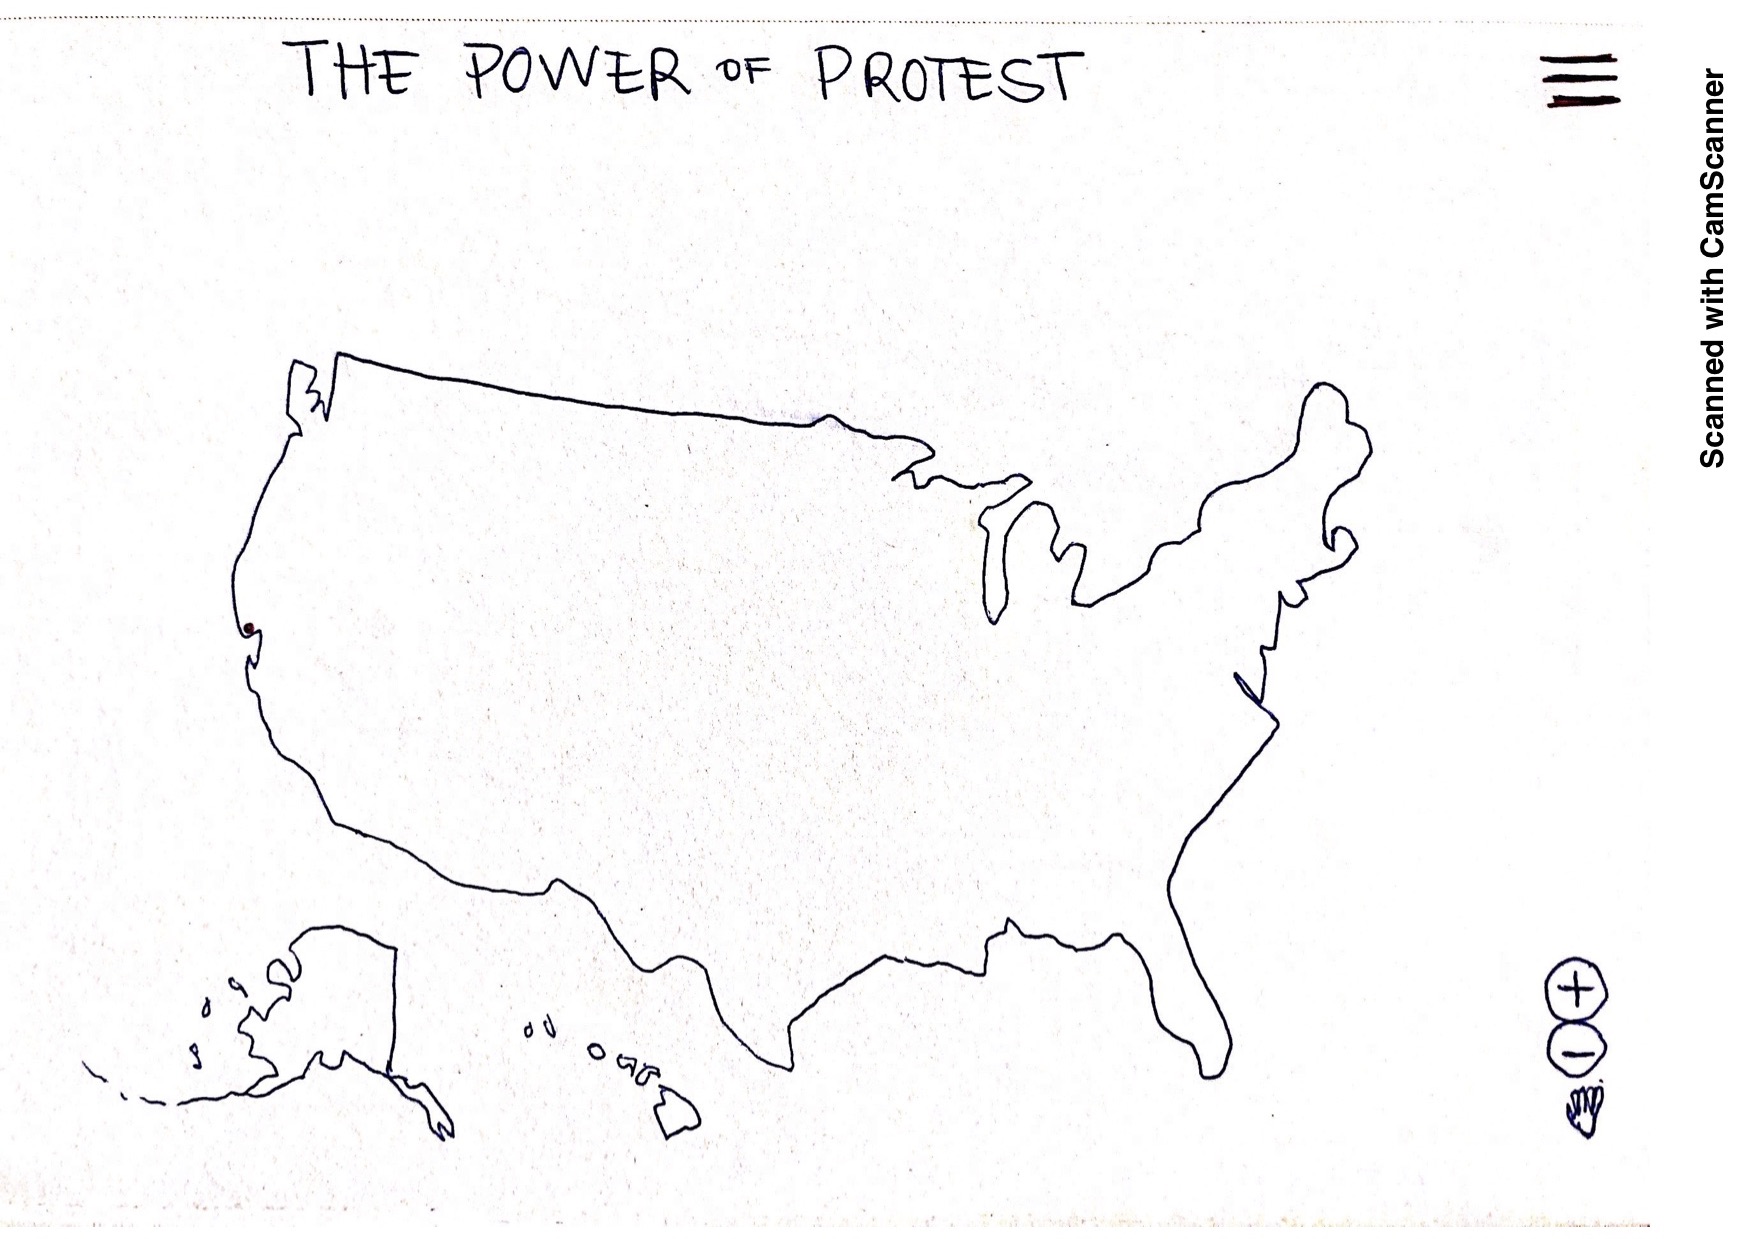 THE POWER OF PROTEST
+
−
Scanned with CamScanner